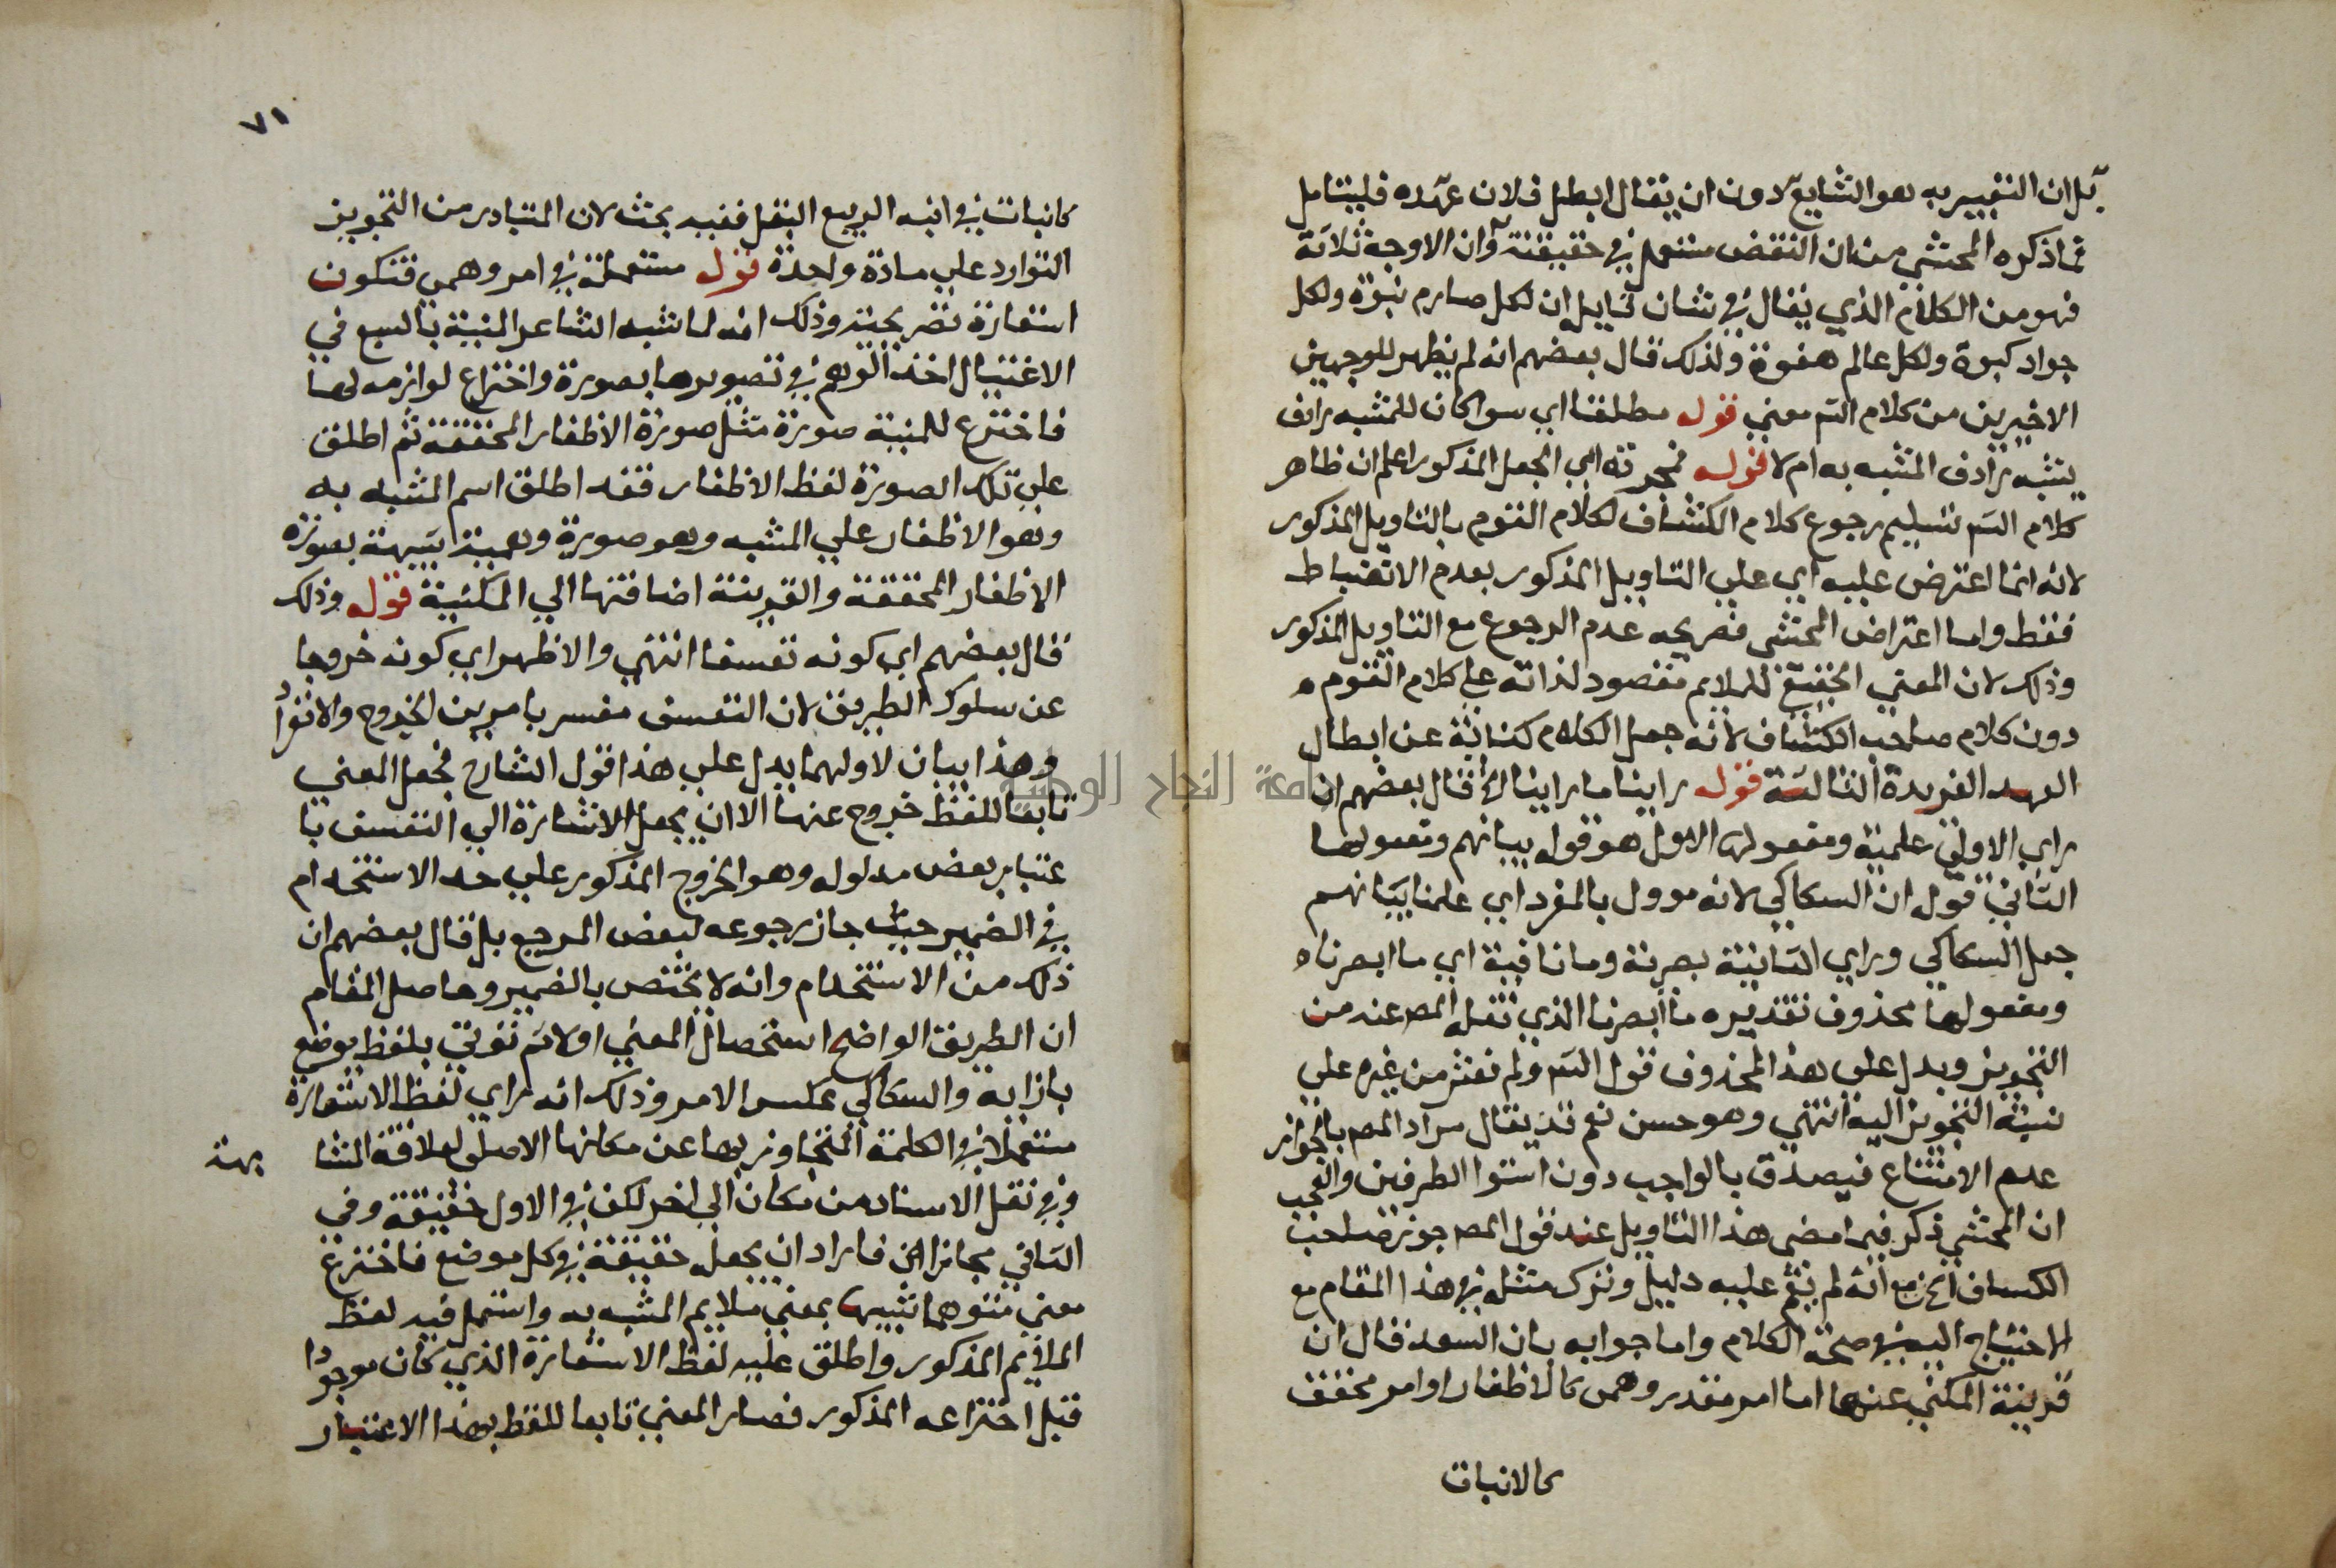 بل ان التعبير به هو الشايع دون ان يقال ابطل فلان عهده فليتامل
فما ذكره المحشي من ان النقض مستعمل في حقيقته وان الاوجه ثلاثة
فهو من الكلام الذي يقال في شان قايله ان لكل صارم نبوة ولكل
جواد كبوة ولكل عالم هفوة ولذلك قال بعضهم انه لم يظهر للوجهين
الاخيرين من كلام الشم معني قوله مطلقا اي سوا كان للمشبه رادف
يشبه رادف المشبه به ام لا قوله اي الجعل المذكور اعلم ان ظاهر
كلام الشم تسليم رجوع كلام الكشاف لكلام القوم بالتاويل المذكور
لانه انما اعترض عليه اي علي التاويل المذكور بعدم الانضباط
فقط واما اعتراض المحشي فصريحه عدم الرجوع مع التاويل المذكور
وذلك لان المعني الحقيقي للملايم مقصود لذاته علي كلام القوم
دون كلام صاحب الكشاف لانه جعل الكلام كناية عن ابطال
العهد الفريدة الثالثة قوله راينا ما راينا الخ قال بعضهم ان
راي الاولي علمية ومفعولها الاول هو قوله بيانهم ومفعولها
الثاني قوله ان السكاكي لانه موول بالمفرد اي علمنا بيانهم
جعل السكاكي وراي الثانية بصرية وما نافية اي ما ابصرناه
ومفعولها محذوف تقديره ما ابصرنا الذي نقله المص عنه من
التجويز ويدل علي هذا المحذوف قول الشم ولم نعثر من غيره علي
نسبة التجويز اليه انتهي وهو حسن نعم قد يقال مراد المص بالجواز
عدم الامتناع فيصدق بالواجب دون استوا الطرفين والعجب
ان المحشي ذكر فيما مضي هذا التاويل عند قول المص جوز صاحب
الكساف الخ مع انه لم يقم عليه دليل وترك مثله في هذا المقام مع
الاحتياج اليه في صحة الكلام واما جوابه بان السعد قال ان
قرينة المكني عنها اما امر مقدر وهمي كالاظفار او امر محقق
كالانبات
٧١
كانبات في انبت الربيع البقل ففيه بحث لان المتبادر من التجويز
التوارد علي مادة واحدة قوله مستعملة في امر وهمي فتكون
استعارة تصريحية وذلك انه لما شبه الشاعر المنية بالسبع في
الاغتيال اخذ الوهم في تصويرها بصورة واختراع لوازمه لها
فاخترع للمنية صورة مثل صورة الاظفار المحققة ثم اطلق
علي تلك الصورة لفظ الاظفار فقد اطلق اسم المشبه به
وهو الاظفار علي المشبه وهو صورة وهمية شبيهة بصورة
الاظفار المحققة والقرينة اضافتها الي المكنية قوله وذلك
قال بعضهم اي كونه تعسفا انتهي والاظهر اي كونه خروجا
عن سلوك الطريق لان التعسف مفسر بامرين الخروج والانفراد
وهذا بيان لاولهما يدل علي هذا قول الشارح فجعل المعني
تابعا للفظ خروج عنها الا ان يجعل الاشارة الي التعسف با
عتبار بعض مدلوله وهو الخروج المذكور علي حد الاستخدام
في الضمير حيث جاز رجوعه لبعض المرجع بل قال بعضهم ان
ذلك من الاستخدام وانه لا يختص بالضمير وحاصل المقام
ان الطريق الواضح استحصال المعني اولا ثم نوتي بلفظ يوضع
بازايه والسكاكي عكس الامر وذلك انه راي لفظ الاستعارة
مستعملا في الكلمة المتجاوز بها عن مكانها الاصلي لعلاقة المشا بهة
وفي نقل الاسناد من مكان الي اخر لكن في الاول حقيقة وفي
الثاني مجازا فاراد ان يجعله حقيقة في كل موضع فاخترع
معني متوهما شبيها بمعني ملايم المشبه به واستعمل فيه لفظ
الملايم المذكور واطلق عليه لفظ الاستعارة الذي كان موجودا
قبل اختراعه المذكور فصار المعني تابعا للفظ بهذا الاعتبار
جامعة النجاح الوطنية